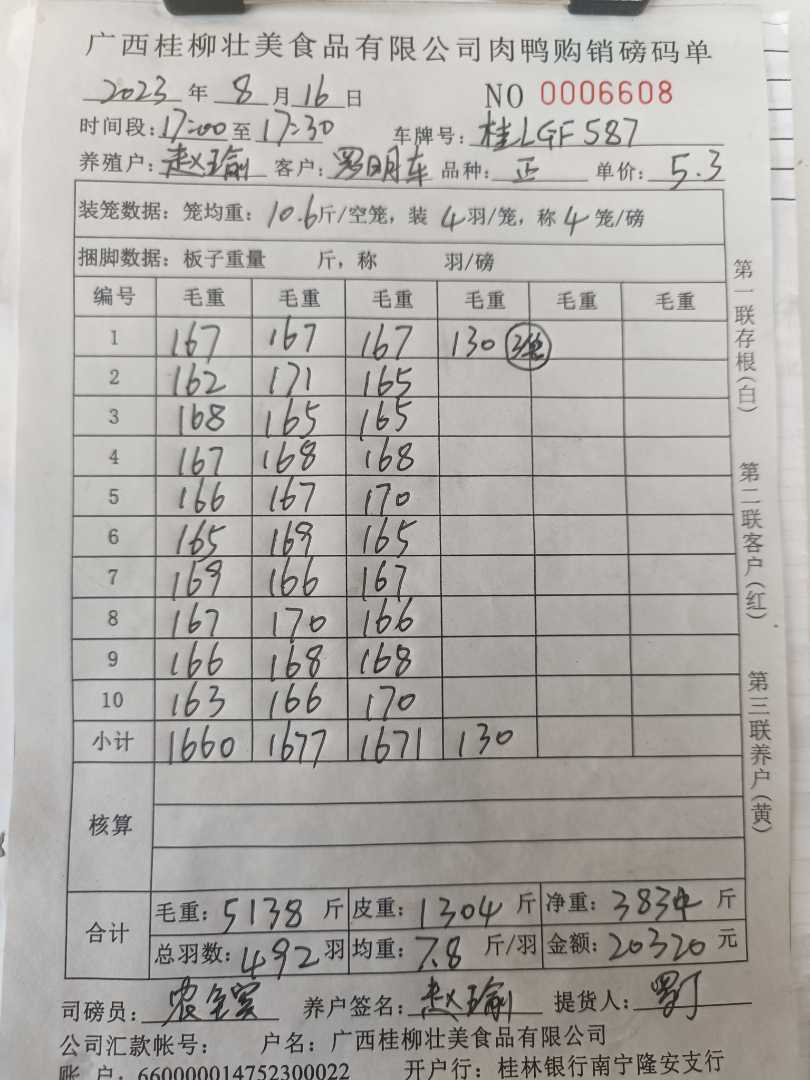 广西桂柳壮美食品有限公司肉鸭购销磅码单
2023 年 8 月 16 日 NO 0006608
时间段:17:00 至 17:30 车牌号: 桂LGF587
养殖户: 赵瑜 客户: 罗明车 品种: 正 单价: 5.3
装笼数据: 笼均重: 10.6 斤/空笼, 装 4 羽/笼, 称 4 笼/磅
捆脚数据: 板子重量 斤, 称 羽/磅
编号 毛重 毛重 毛重 毛重 毛重 毛重
1 167 167 167 130 3笼
2 162 171 165
3 168 165 165
4 167 168 168
5 166 167 170
6 165 169 165
7 169 166 167
8 167 170 166
9 166 168 168
10 163 166 170
小计 1660 1677 1671 130
核算
合计
毛重: 5138 斤 皮重: 1304 斤 净重: 3834 斤
总羽数: 492 羽 均重: 7.8 斤/羽 金额: 20320 元
司磅员: 养户签名: 赵瑜 提货人:
公司汇款帐号: 户名: 广西桂柳壮美食品有限公司
账 户: 660000014752300022 开户行: 桂林银行南宁隆安支行
第一联存根(白)
第二联客户(红)
第三联养户(黄)